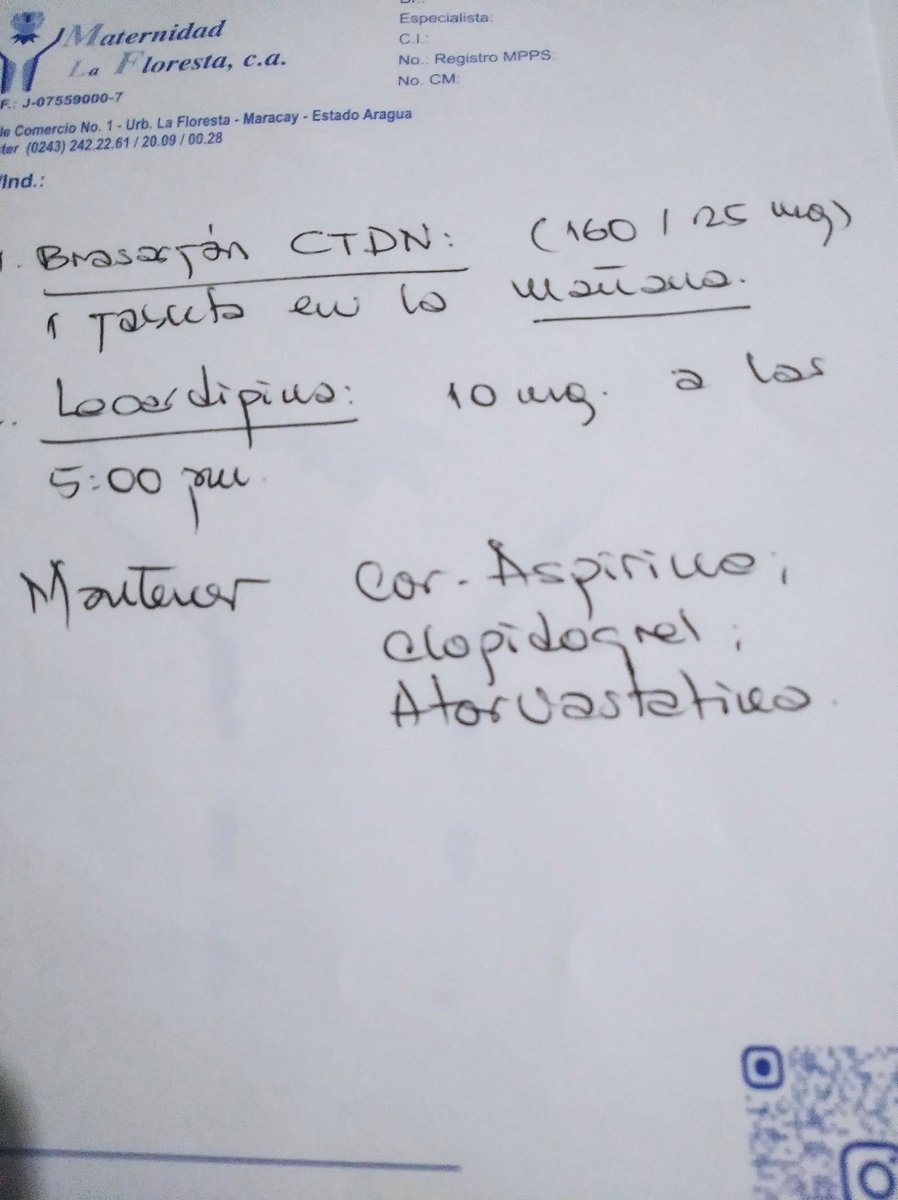 Maternidad
La Floresta, c.a.
F.: J-07559000-7
le Comercio No. 1 - Urb. La Floresta - Maracay - Estado Aragua
ter (0243) 242.22.61 / 20.09 / 00.28
Especialista:
C.I.:
No.: Registro MPPS:
No. CM:
/Ind.:
. Brasartán CTDN: (160 / 25 mg)
1 Tableta en la mañana.
. Lecardipina: 10 mg. a las
5:00 pm.
Mantener Cor-Aspirina;
Clopidogrel;
Atorvastatina.